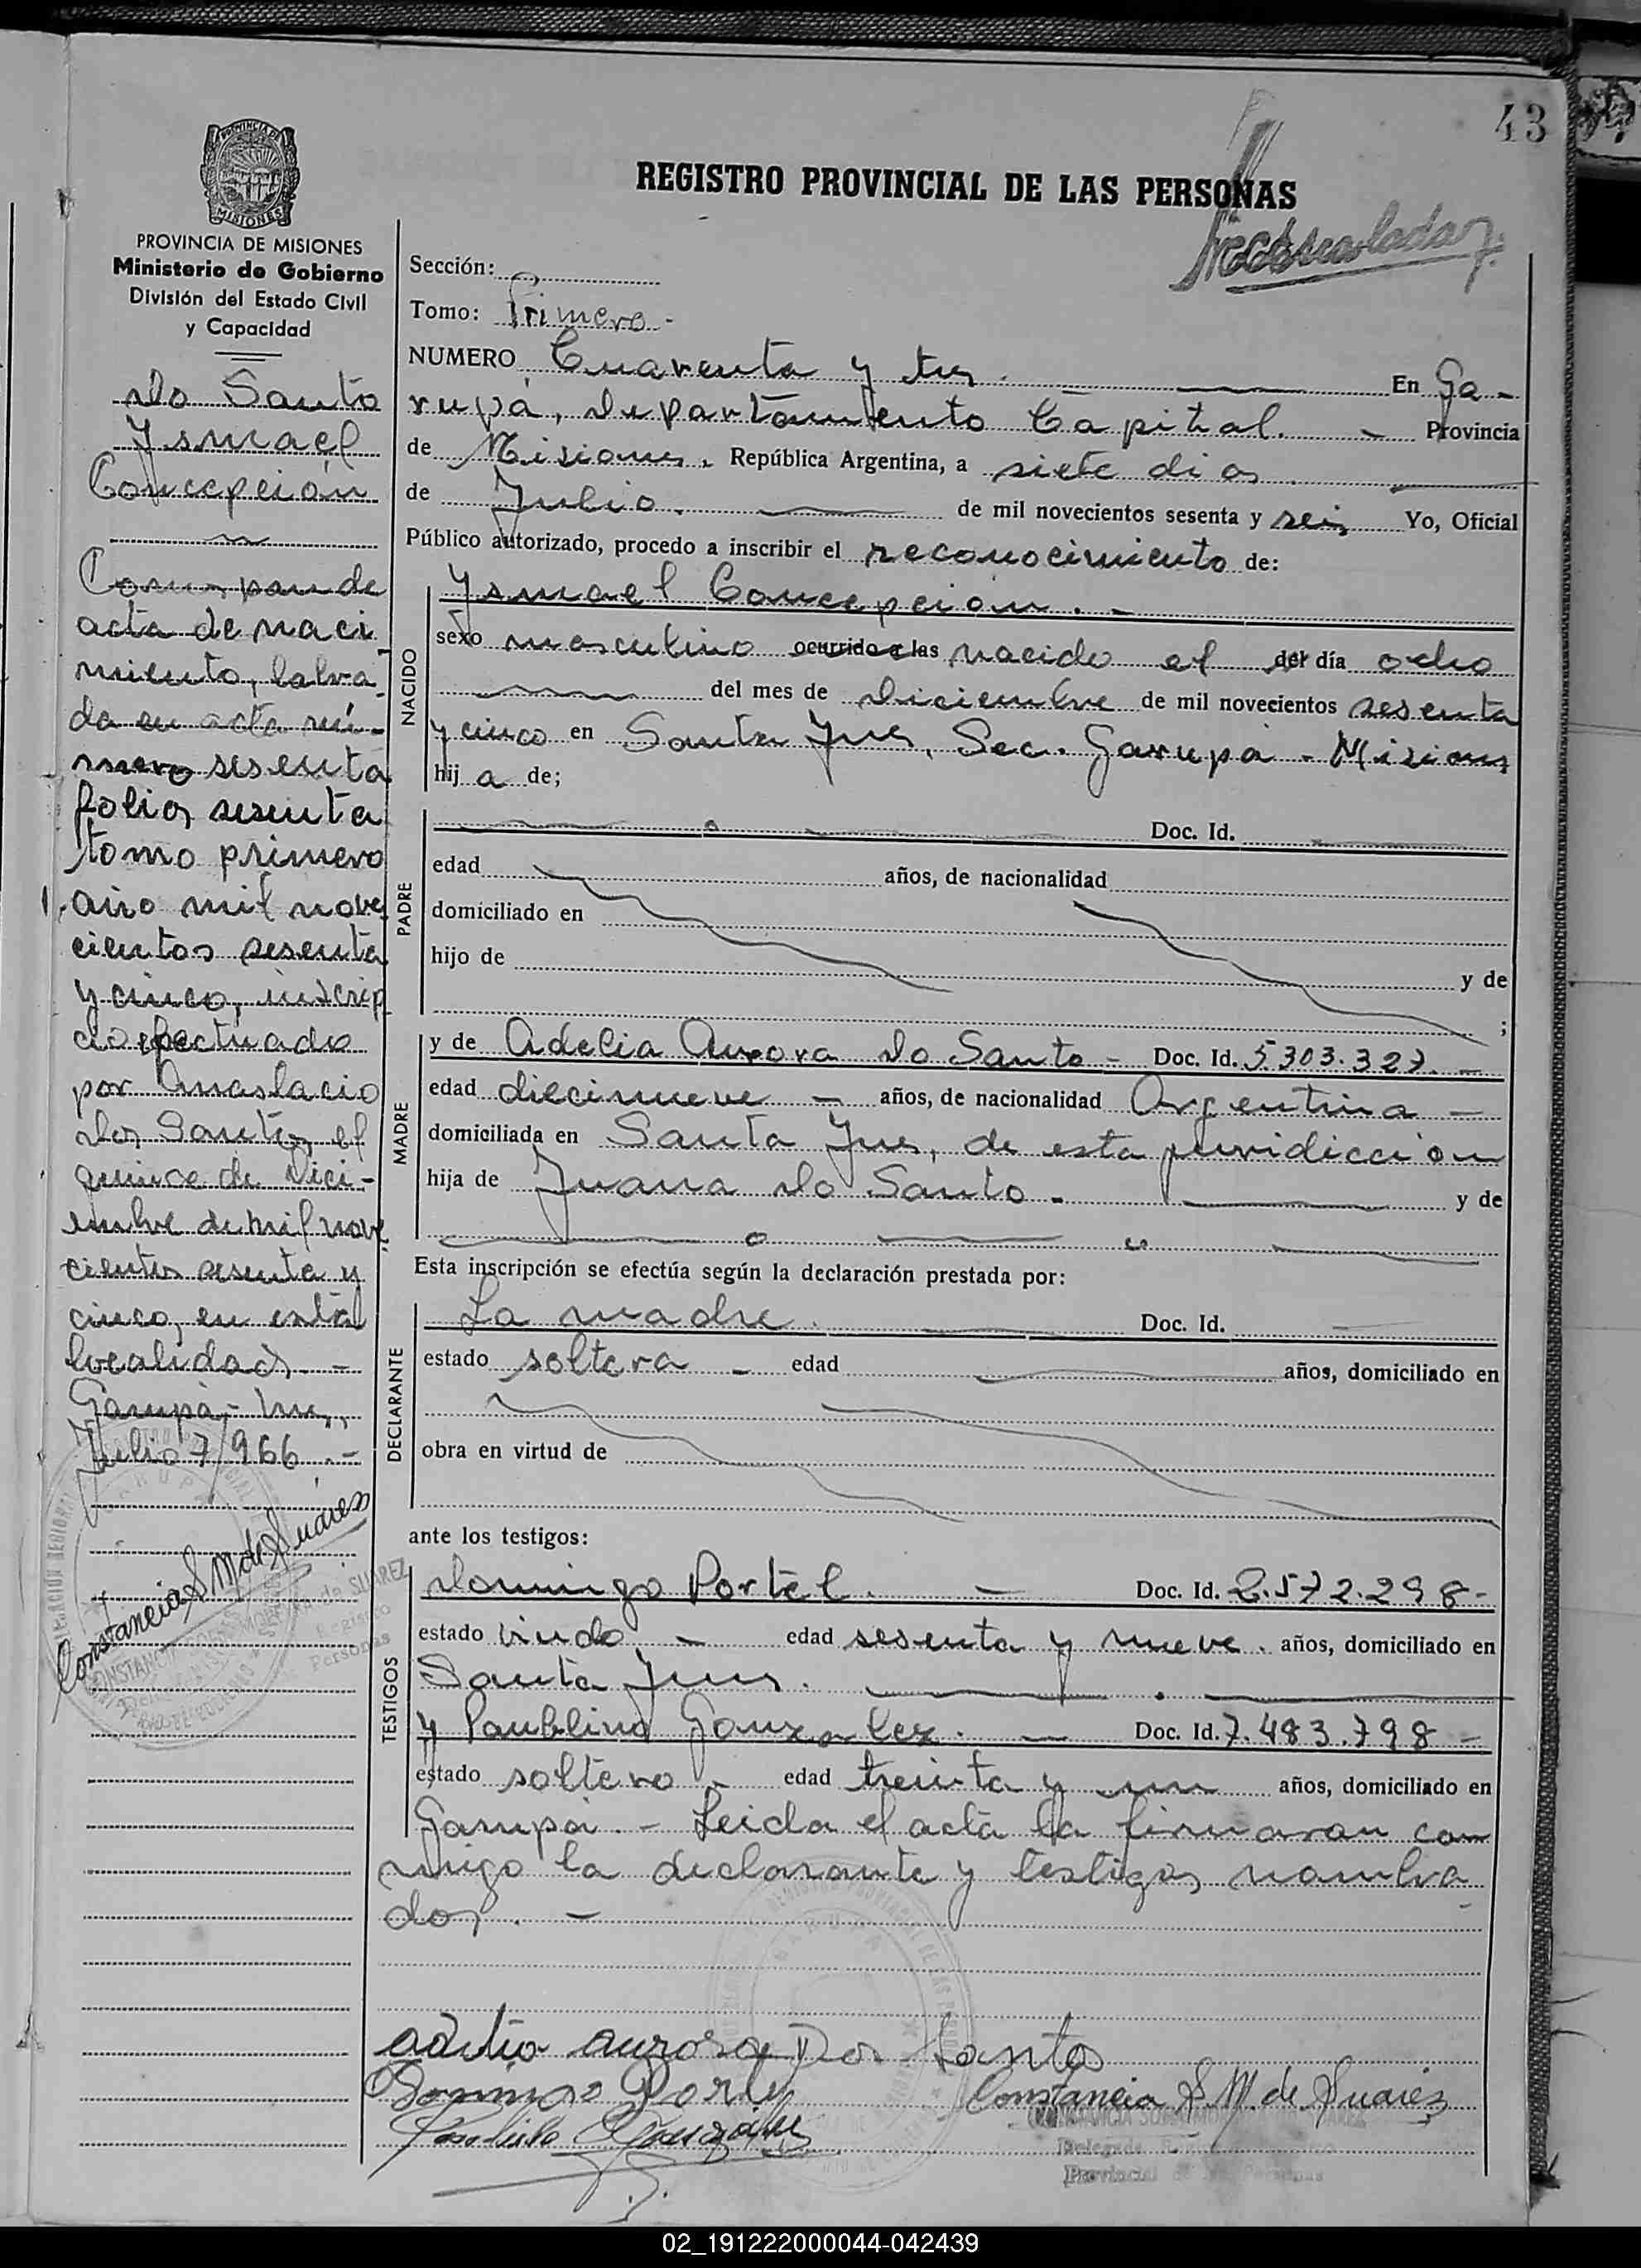 43
REGISTRO PROVINCIAL DE LAS PERSONAS
PROVINCIA DE
MISIONES
PROVINCIA DE MISIONES
Ministerio de Gobierno
División del Estado Civil
y Capacidad
Do Santo
Ysmael
Concepción
acta de naci
miento, labra
da en acta nú-
mero sesenta
folio sesenta
tomo primero
año mil nove
cientos sesenta
y cinco, inscrip
efectuada
por
Dos Santos, el
quince de Dici-
embre de mil nove
cientos sesenta y
cinco, en esta
localidad. -
Garupá,
Julio 7/966. -
Constancia S M de Suarez
Sección:
Tomo: Primero -
NUMERO Cuarenta y tres. En Ga -
rupá, Departamento Capital. - Provincia
de Misiones, República Argentina, a siete dias
de Julio. de mil novecientos sesenta y seis Yo, Oficial
Público autorizado, procedo a inscribir el reconocimiento de:
Ysmael Concepción. -
NACIDO
sexo masculino ocurrido a las nacido el del día ocho
del mes de Diciembre de mil novecientos sesenta
y cinco en Santa Ines, Sec. Garupá - Misiones
hij a de;
PADRE
Doc. Id.
edad años, de nacionalidad
domiciliado en
hijo de y de
;
MADRE
y de Adelia Aurora Do Santo - Doc. Id. 5.303.327. -
edad diecinueve - años, de nacionalidad Argentina -
domiciliada en Santa Ines, de esta juridicción
hija de Juana Do Santo. - y de
Esta inscripción se efectúa según la declaración prestada por:
DECLARANTE
La madre. Doc. Id. -
estado soltera - edad años, domiciliado en
obra en virtud de
ante los testigos:
TESTIGOS
Domingo Portel. - Doc. Id. 2.572.298 -
estado viudo, - edad sesenta y nueve. años, domiciliado en
Santa Ines.
y Paublino Gonzalez. - Doc. Id. 7.483.798 -
estado soltero - edad treinta y un años, domiciliado en
Garupá. - Leida el acta la firmaran con
migo la declarante y testigos nombra
dos. -
aurora Dos Santos
Constancia S M. de Suarez
02_191222000044-042439